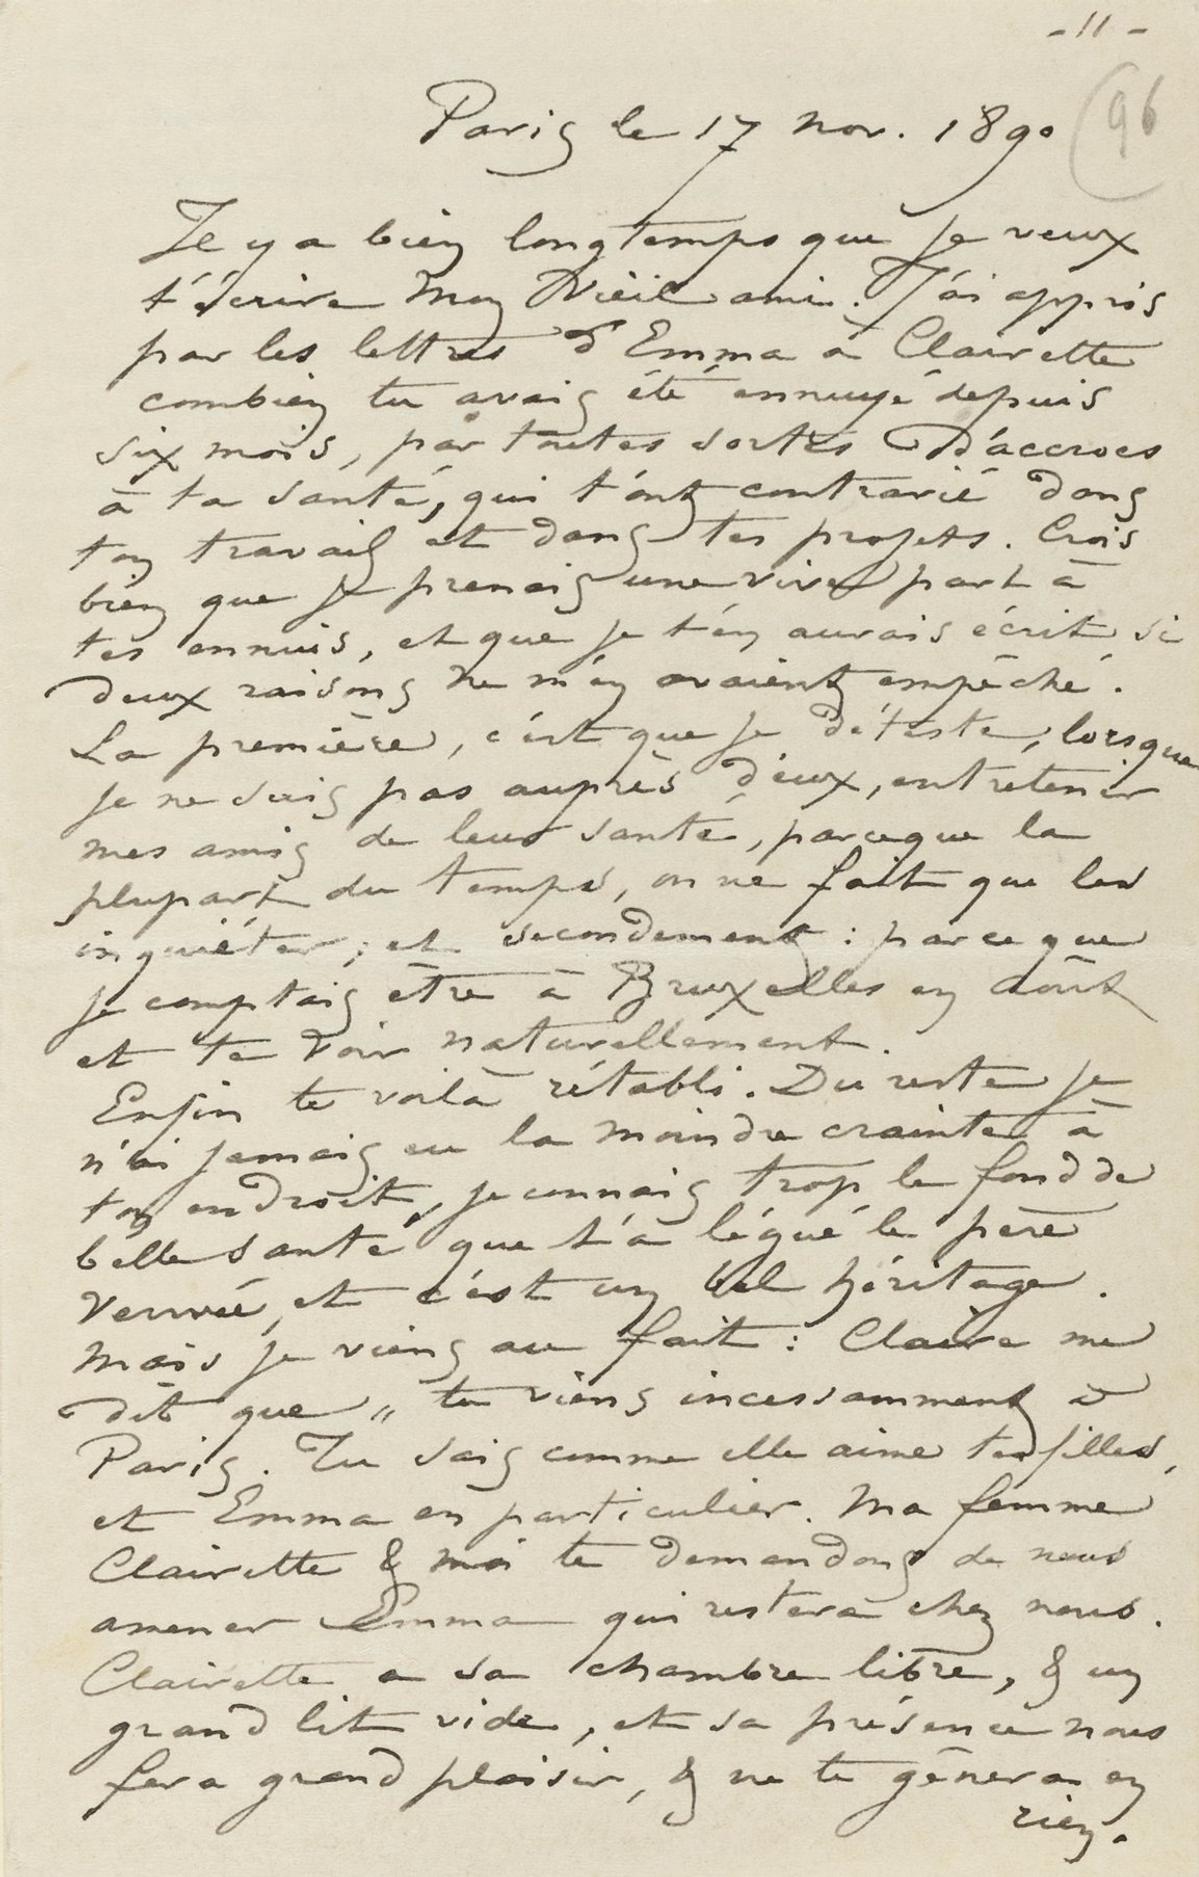 - 11 -
96
Paris le 17 nov. 1890
Il y a bien longtemps que je veux
t'écrire mon Vieil ami. J'ai appris
par les lettres d'Emma à Clairette
combien tu avais été ennuyé depuis
six mois, par toutes sortes d'accrocs
à ta santé, qui t'ont contrarié dans
ton travail et dans tes projets. Crois
bien que je prenais une vive part à
tes ennuis, et que je t'en aurais écrit si
deux raisons ne m'en avaient empêché.
La première, c'est que je déteste, lorsque
je ne suis pas auprès d'eux, entretenir
mes amis de leur santé, parceque la
plupart du temps, on ne fait que les
inquiéter ; et secondement : parce que
je comptais être à Bruxelles en Août
et te voir naturellement.
Enfin te voilà rétabli. Du reste je
n'ai jamais eu la moindre crainte à
ton endroit, je connais trop le fond de
belle santé que t'a légué le père
Verwée, et c'est un bel héritage.
Mais je viens au fait : Claire me
dit que " tu viens incessamment à
Paris. Tu sais comme elle aime tes filles,
et Emma en particulier. Ma femme
Clairette & moi te demandons de nous
amener Emma qui restera chez nous.
Clairette a sa chambre libre, & un
grand lit vide, et sa présence nous
fera grand plaisir, & ne te gênera en
rien.